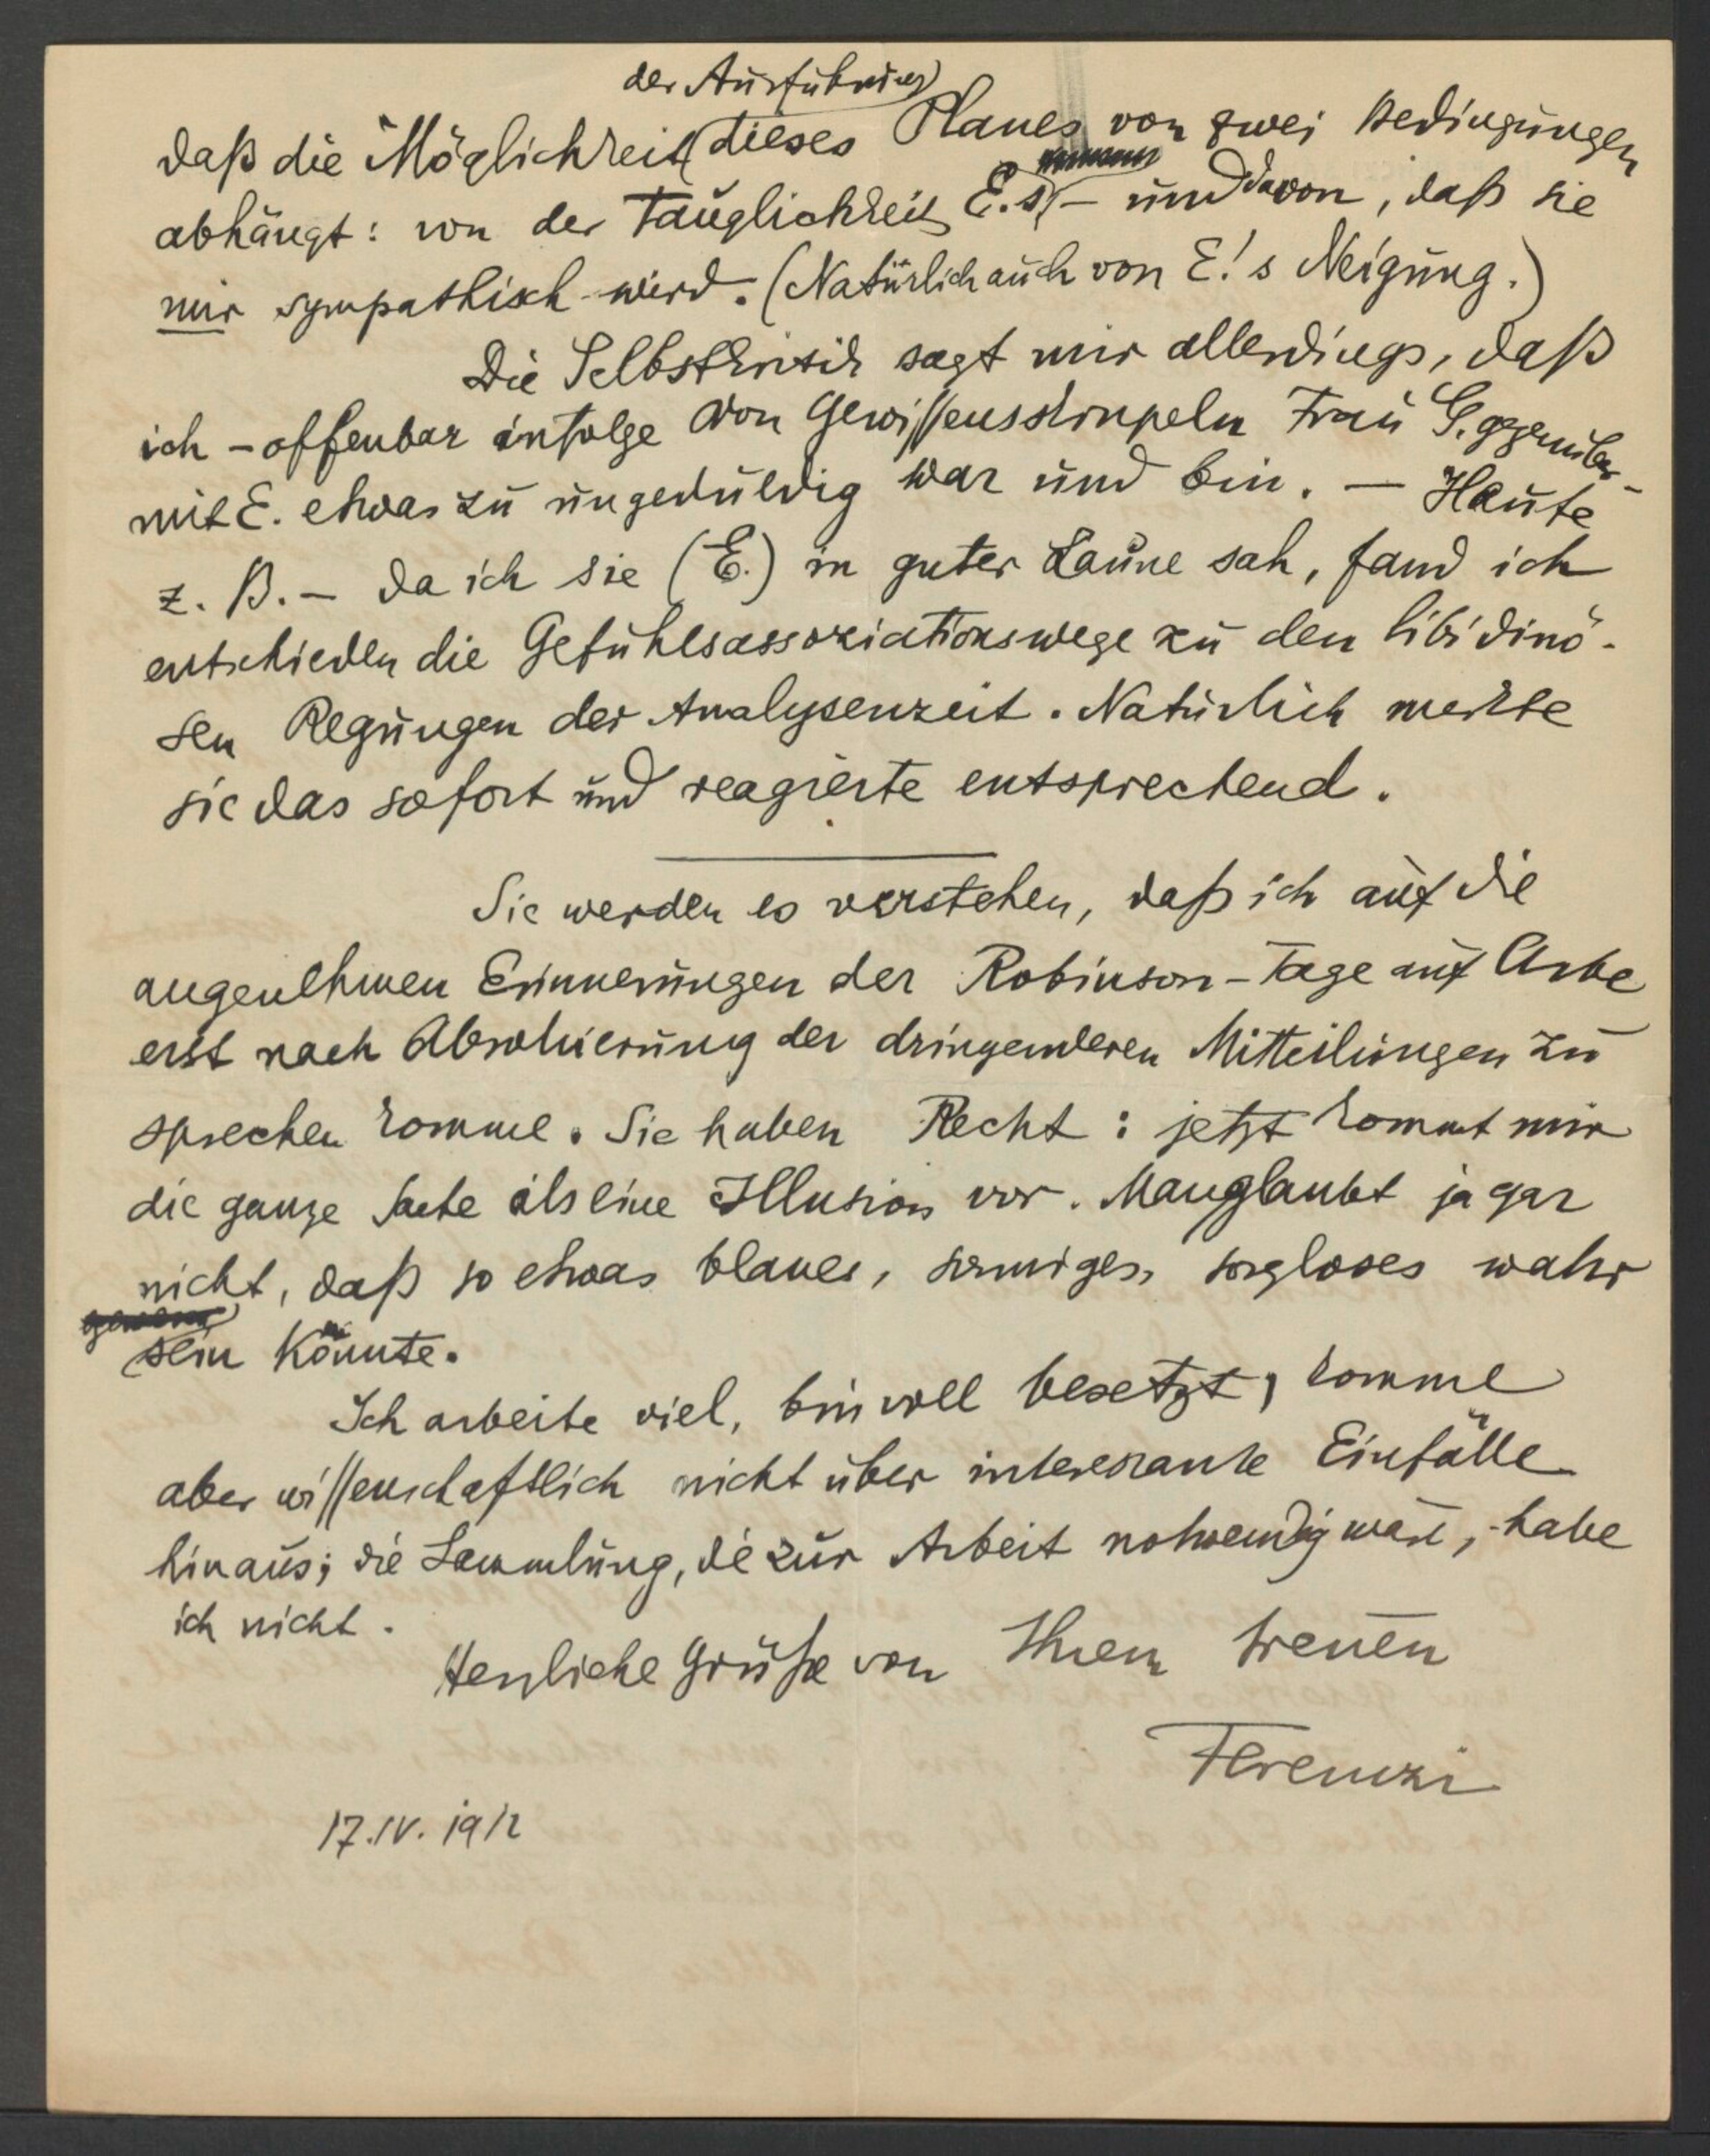 der Ausführung
daß die Möglichkeit dieses Planes von zwei Bedingungen
abhängt: von der Tauglichkeit E.s, – und davon, daß sie
mir sympathisch wird. (Natürlich auch von E.'s Neigung.)
Die Selbstkritik sagt mir allerdings, daß
ich – offenbar infolge von Gewissensskrupeln Frau G. gegenüber –
mit E. etwas zu ungeduldig war und bin. – Heute
z. B. – da ich sie (E.) in guter Laune sah, fand ich
entschieden die Gefühlsassoziationswege zu den libidinö-
sen Regungen der Analysenzeit. Natürlich merkte
sie das sofort und reagierte entsprechend.
Sie werden es verstehen, daß ich auf die
angenehmen Erinnerungen der Robinson-Tage auf Arbe
erst nach Absolvierung der dringenderen Mitteilungen zu
sprechen komme. Sie haben Recht: jetzt kommt mir
die ganze Sache als eine Illusion vor. Man glaubt ja gar
nicht, daß so etwas blaues, sonniges, sorgloses wahr
sein könnte.
Ich arbeite viel, bin voll besetzt, komme
aber wissenschaftlich nicht über interessante Einfälle
hinaus; die Sammlung, die zur Arbeit notwendig wäre, habe
ich nicht.
Herzliche Grüße von Ihrem treuen
Ferenczi
17.IV.1912